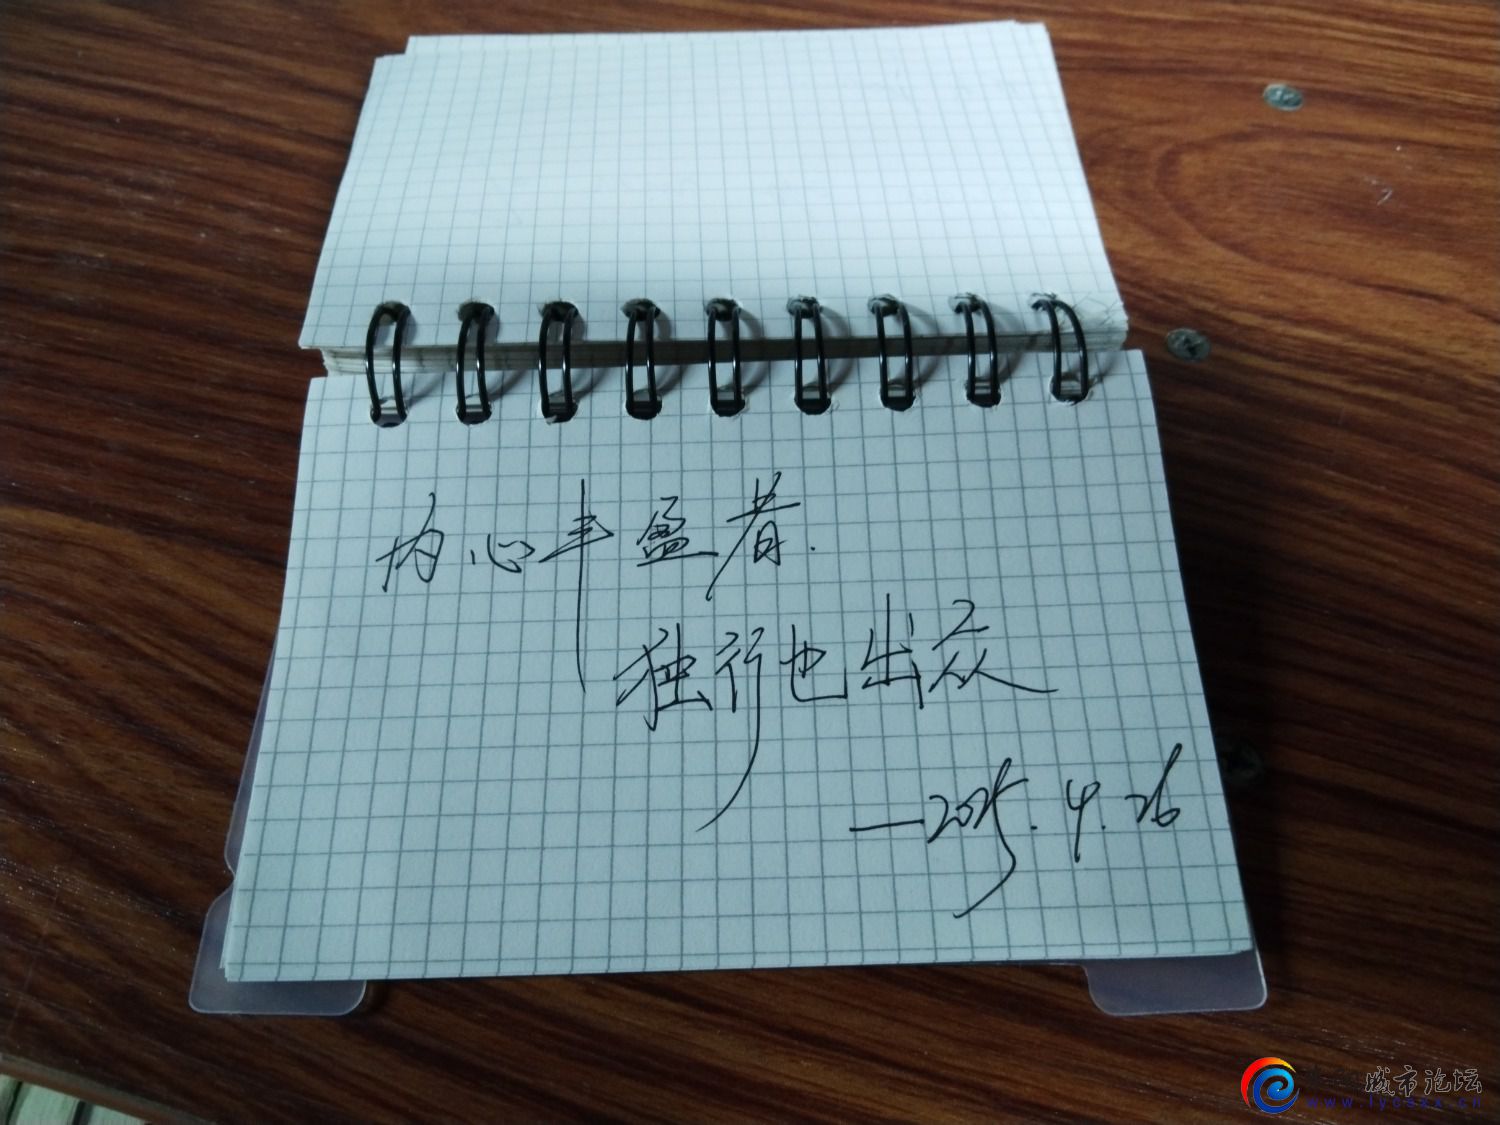 内心丰盈者.
独行也出众
—2025.4.26
城市论坛
www.lycsxx.cn